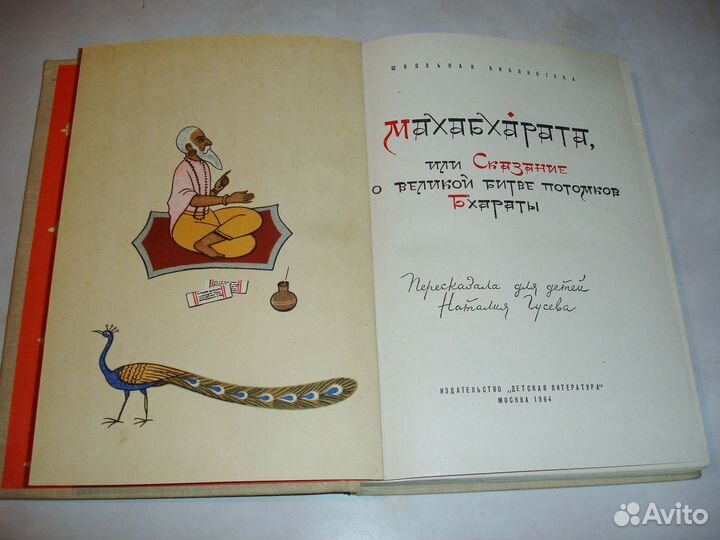 ШКОЛЬНАЯ БИБЛИОТЕКА
МАХАБХАРАТА,
ИЛИ СКАЗАНИЕ
О ВЕЛИКОЙ БИТВЕ ПОТОМКОВ
БХАРАТЫ
Пересказала для детей
Наталия Гусева
ИЗДАТЕЛЬСТВО „ДЕТСКАЯ ЛИТЕРАТУРА"
МОСКВА 1964
Avito